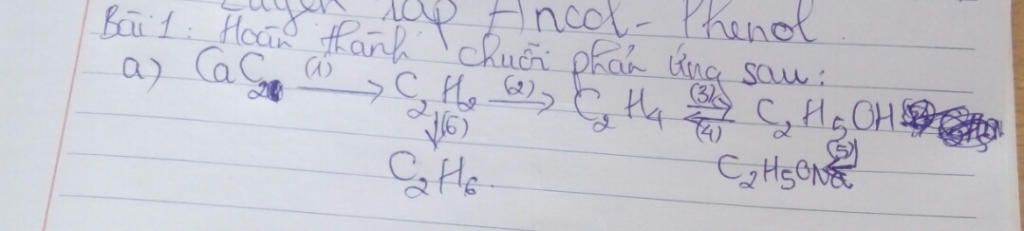 Luyện tập Ancol - Phenol
Bài 1: Hoàn thành chuỗi phản ứng sau:
a) CaC2 (1)→ C2H2 (2)→ C2H4 (3)⇌(4) C2H5OH
↓(6) (5)
C2H6 C2H5ONa